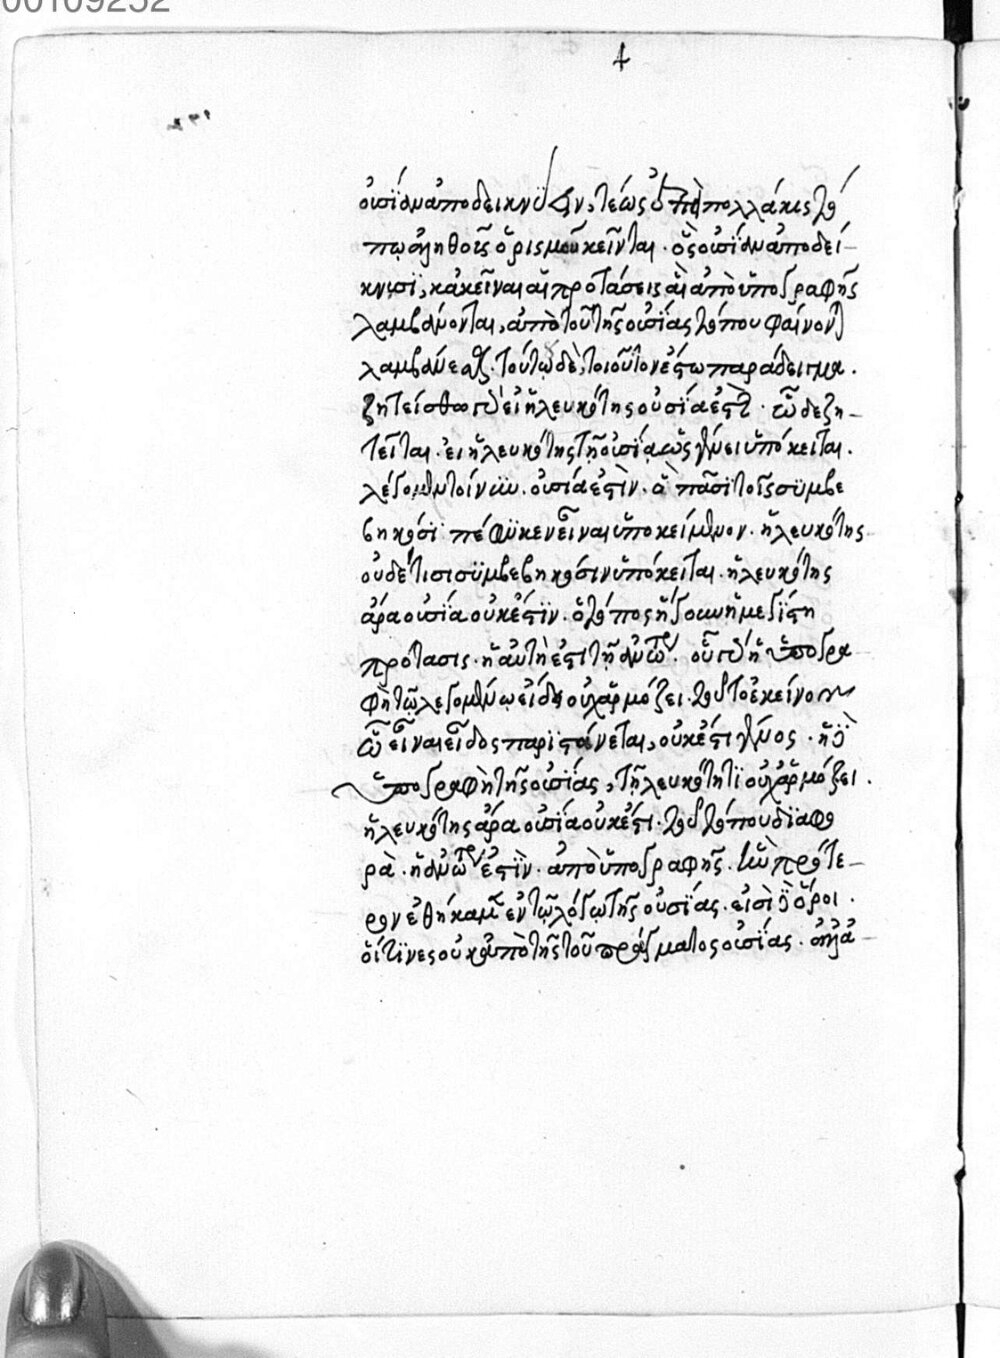 00109252
οὐσίαν ἀποδεικνύουσιν, τέως ὅτι πολλάκις τό
πῳ ἀληθοῦς ὁρισμοῦ κεῖνται. ὃς οὐσίαν ἀποδεί-
κνυσι, κἀκεῖναι αἱ προτάσεις αἳ ἀπὸ ὑπογραφῆς
λαμβάνονται, ἀπὸ τοῦ τῆς οὐσίας τόπου φαίνονται
λαμβάνεσθαι. τούτῳ δὲ, τοιοῦτον ἔστω παράδειγμα.
ζητείσθω γὰρ εἰ ἡ λευκότης οὐσία ἐστὶ. ὧδε ζη-
τεῖται. εἰ ἡ λευκότης τῇ οὐσίᾳ ὡς γένει ὑπόκειται.
λέγομεν τοίνυν. οὐσία ἐστὶν. ἃ πᾶσι τοῖς συμβε
βηκόσι πέφυκεν εἶναι ὑποκείμενον. ἡ λευκότης
οὐδέ τισι συμβεβηκόσιν ὑπόκειται. ἡ λευκότης
ἄρα οὐσία οὐκ ἔστιν. ὁ τόπος ἤγουν ἡ μεγίστη
πρότασις. ἡ αὐτὴ ἐστι τῇ ἀνωτέρω. οὗ γὰρ ἡ ὑπογρα
φὴ τῷ λεγομένῳ εἴδει οὐχ ἁρμόζει. τοῦτο ἐκείνου
ᾧ εἶναι εἶδος παριστάνεται, οὐκ ἔστι γένος. ἡ δὲ
ὑπογραφὴ τῆς οὐσίας, τῇ λευκότητι οὐχ ἁρμόζει.
ἡ λευκότης ἄρα οὐσία οὐκ ἔστι. τοῦ τόπου διαφο
ρὰ. ἡ ἀνωτέρω ἐστὶν. ἀπὸ ὑπογραφῆς. ἣν πρότε-
ρον ἐθήκαμεν ἐν τῷ λόγῳ τῆς οὐσίας. εἰσὶ δὲ ὅροι.
οἵτινες οὐκ ἀπὸ τῆς τοῦ πράγματος οὐσίας. ἀλλὰ-